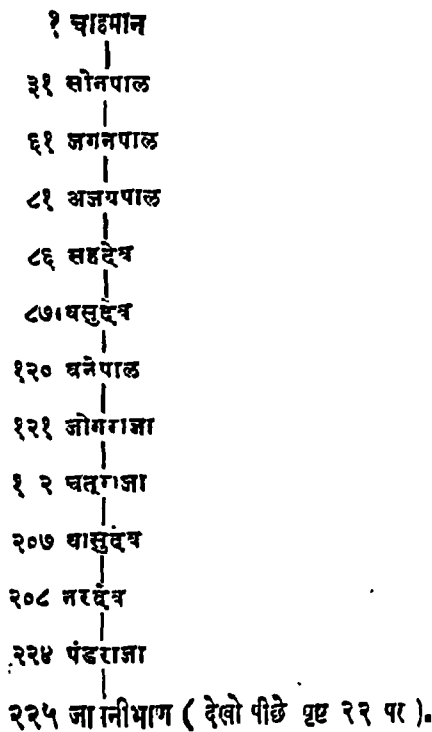 १ चाहमान
३१ सोनपाल
६१ जगनपाल
८१ अजयपाल
८६ सहदेव
८७ वसुदेव
१२० धनेपाल
१२१ जोगराजा
१ २ चतुराजा
२०७ वासुदेव
२०८ नरदेव
२२४ पंडराजा
२२५ जा नीभाण ( देखो पीछे पृष्ट २२ पर ).